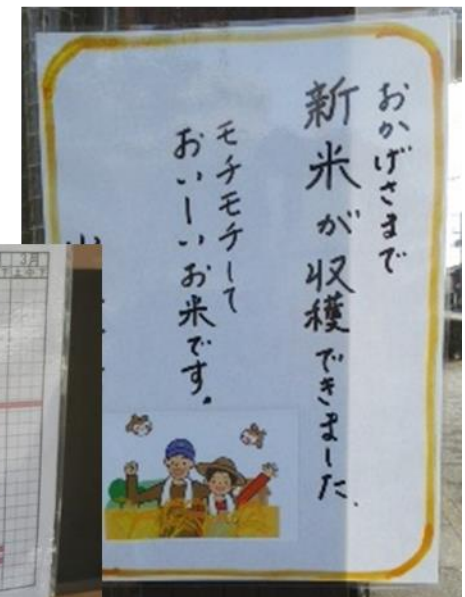 おかげさまで
新米が収穫できました、
モチモチして
おいしいお米です。
3月
上中下